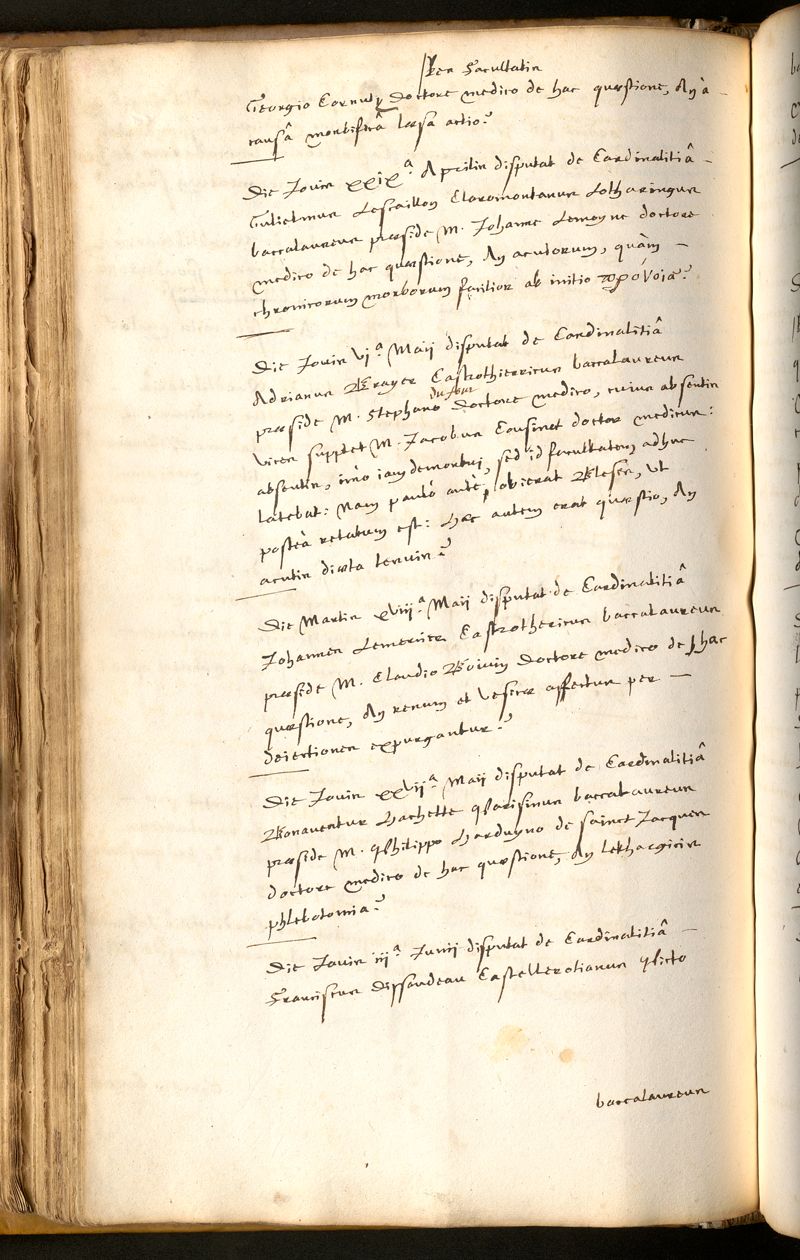 Georgio Cornuty doctore medico de hac quæstione, An à
causâ morbificâ læsa actio?
Die Jovis xxix.ª Aprilis disputat de Cardinalitiâ
Gulielmus Lescaillon Claromontanus Lotharingus
baccalaureus præside M. Johanne Lemoyne doctore
medico de hac quæstione, An acutorum, quàm
chronicorum morborum facilior ab initio πρόνοια?
Die Jovis vi.ª Maij disputat de Cardinalitiâ
Adrianus Brayer Castrothierricus baccalaureus
du four
præside M. Stephano doctore medico, cuius absentis
vices supplet M. Jacobus Cousinot doctor medicus:
absentis, imò iam demortui, sed id facultatem adhuc
latebat: Nam paulò antè, obierat Blesis, ut
posteà relatum est: Hæc autem erat quæstio, An
acutis diæta tenuis?
Die Martis xviij.ª Maij disputat de Cardinalitiâ
Johannes Lemercier Castrothericus baccalaureus
præside M. Claudio Boivin doctore medico de hac
quæstione, An renum et vesicæ affectus per
deiectiones expurgantur?
Die Jovis xxvij.ª Maij disputat de Cardinalitiâ
Bonaventur Hachette Parisinus baccalaureus
præside M. Philippo Harduyno de sainct Jacques
doctore medico de hac quæstione, An lethargicis
phlebotomia?
Die Jovis iij.ª Junij disputat de Cardinalitiâ
Franciscus Castellerotianus Picto
baccalaureus